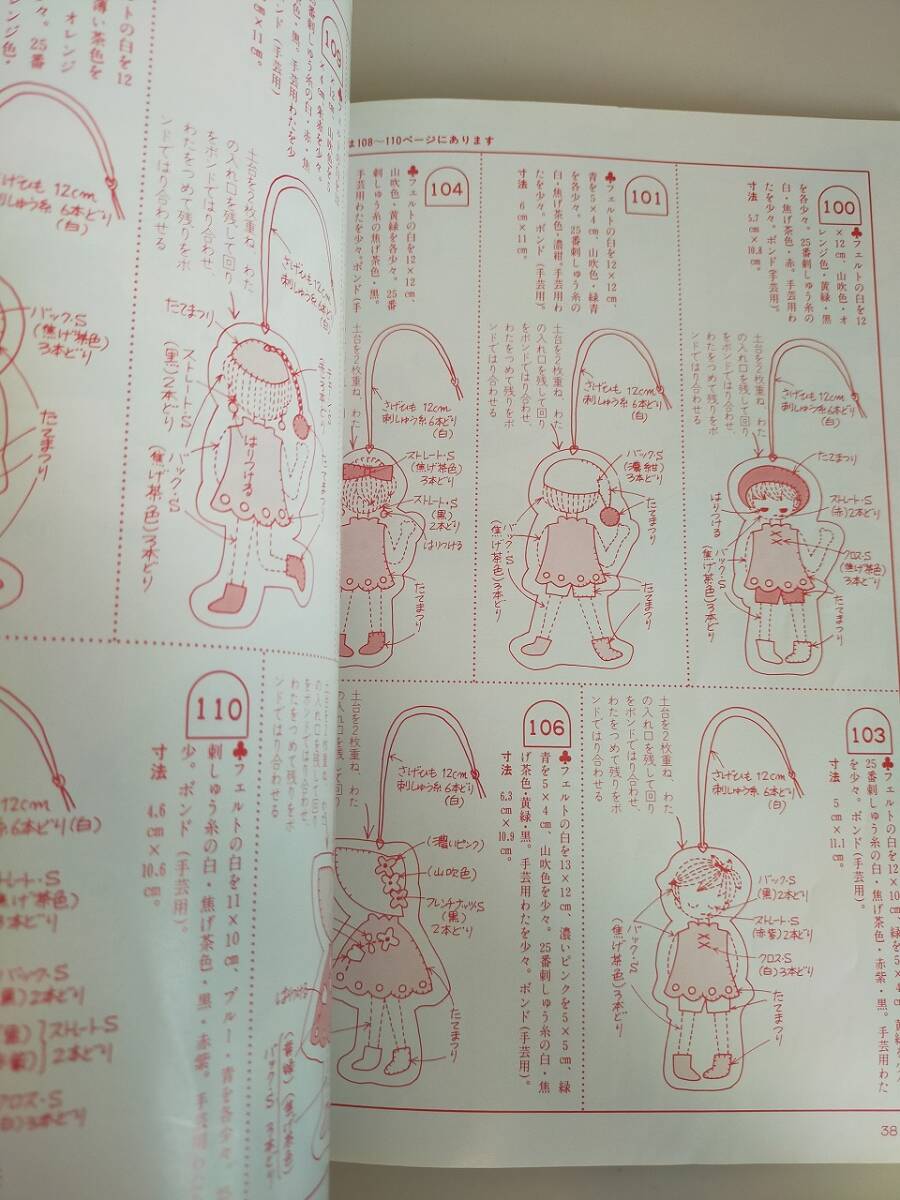 は108〜110ページにあります
100
♣フェルトの白を12
×12cm、山吹色・オ
レンジ色・黄緑・黒
を各少々。25番刺しゅう糸の
白・焦げ茶色・赤。手芸用わ
たを少々。ボンド(手芸用)。
寸法 5.7cm×10.8cm。
土台を2枚重ね、わた
の入れ口を残して回り
をボンドではり合わせ、
わたをつめて残りをボ
ンドではり合わせる
さげひも 12cm
刺しゅう糸6本どり
(白)
たてまつり
ストレート・S
(赤)2本どり
クロス・S
(焦げ茶色)
3本どり
はりつける
バック・S
(焦げ茶色)3本どり
たてまつり
101
♣フェルトの白を12×12cm、
青を5×4cm、山吹色・緑青
を各少々。25番刺しゅう糸の
白・焦げ茶色・濃紺。手芸用わ
たを少々。ボンド(手芸用)。
寸法 6cm×11cm。
土台を2枚重ね、わた
の入れ口を残して回り
をボンドではり合わせ、
わたをつめて残りをボ
ンドではり合わせる
さげひも 12cm
刺しゅう糸6本どり
(白)
バック・S
(濃紺)
3本どり
たてまつり
バック・S
(焦げ茶色)3本どり
たてまつり
104
♣フェルトの白を12×12cm、
山吹色・黄緑を各少々。25番
刺しゅう糸の焦げ茶色・黒。
手芸用わたを少々。ボンド(手
土台を2枚重ね、わた
さげひも 12cm
刺しゅう糸6本どり
(白)
ストレート・S
(焦げ茶色)
3本どり
ストレート・S
(黒)
2本どり
はりつける
たてまつり
103
♣フェルトの白を12×10cm、緑を5×4c
25番刺しゅう糸の白・焦げ茶色・赤紫・黒。手芸用わた
を少々。ボンド(手芸用)。
寸法 5cm×11.1cm。
土台を2枚重ね、わた
の入れ口を残して回り
をボンドではり合わせ、
わたをつめて残りをボ
ンドではり合わせる
さげひも 12cm
刺しゅう糸6本どり
(白)
バック・S
(黒)2本どり
ストレート・S
(赤紫)2本どり
クロス・S
(白)3本どり
バック・S
(焦げ茶色)3本どり
たてまつり
106
♣フェルトの白を13×12cm、濃いピンクを5×5cm、緑
青を5×4cm、山吹色を少々。25番刺しゅう糸の白・焦
げ茶色・黄緑・黒。手芸用わたを少々。ボンド(手芸用)。
寸法 6.3cm×10.9cm。
土台を2枚重ね、わた
の入れ口を残して回り
をボンドではり合わせ、
わたをつめて残りをボ
ンドではり合わせる
さげひも 12cm
刺しゅう糸6本どり
(白)
(濃いピンク)
(山吹色)
フレンチナッツ・S
(黒)
2本どり
たてまつり
38
109
×12cm、山吹色を5
×4cm
刺しゅう糸の白・赤・焦
げ茶色・黒。手芸用わたを少
(手芸用)
cm×11cm。
土台を2枚重ね、わた
の入れ口を残して回り
をボンドではり合わせ、
わたをつめて残りをボ
ンドではり合わせる
さげひも 12cm
刺しゅう糸6本どり
(白)
たてまつり
ストレート・S
(黒)2本どり
はりつける
バック・S
(焦げ茶色)3本どり
ルトの白を12
オレンジ
薄い茶色を
25番
さげひも 12cm
刺しゅう糸6本どり
(白)
バック・S
(焦げ茶色)
3本どり
たてまつり
110
♣フェルトの白を11×10cm、ブルー・青を各少々。25
刺しゅう糸の白・焦げ茶色・黒・赤紫。手芸用わた
少々。ボンド(手芸用)。
寸法 4.6cm×10.6cm。
12cm
糸6本どり(白)
ストレート・S
焦げ茶色)
3本どり
バック・S
(黒)2本どり
ストレートS
2本どり
クロス・S
(白)3本どり
(焦げ茶色)
バック・S
3本どり